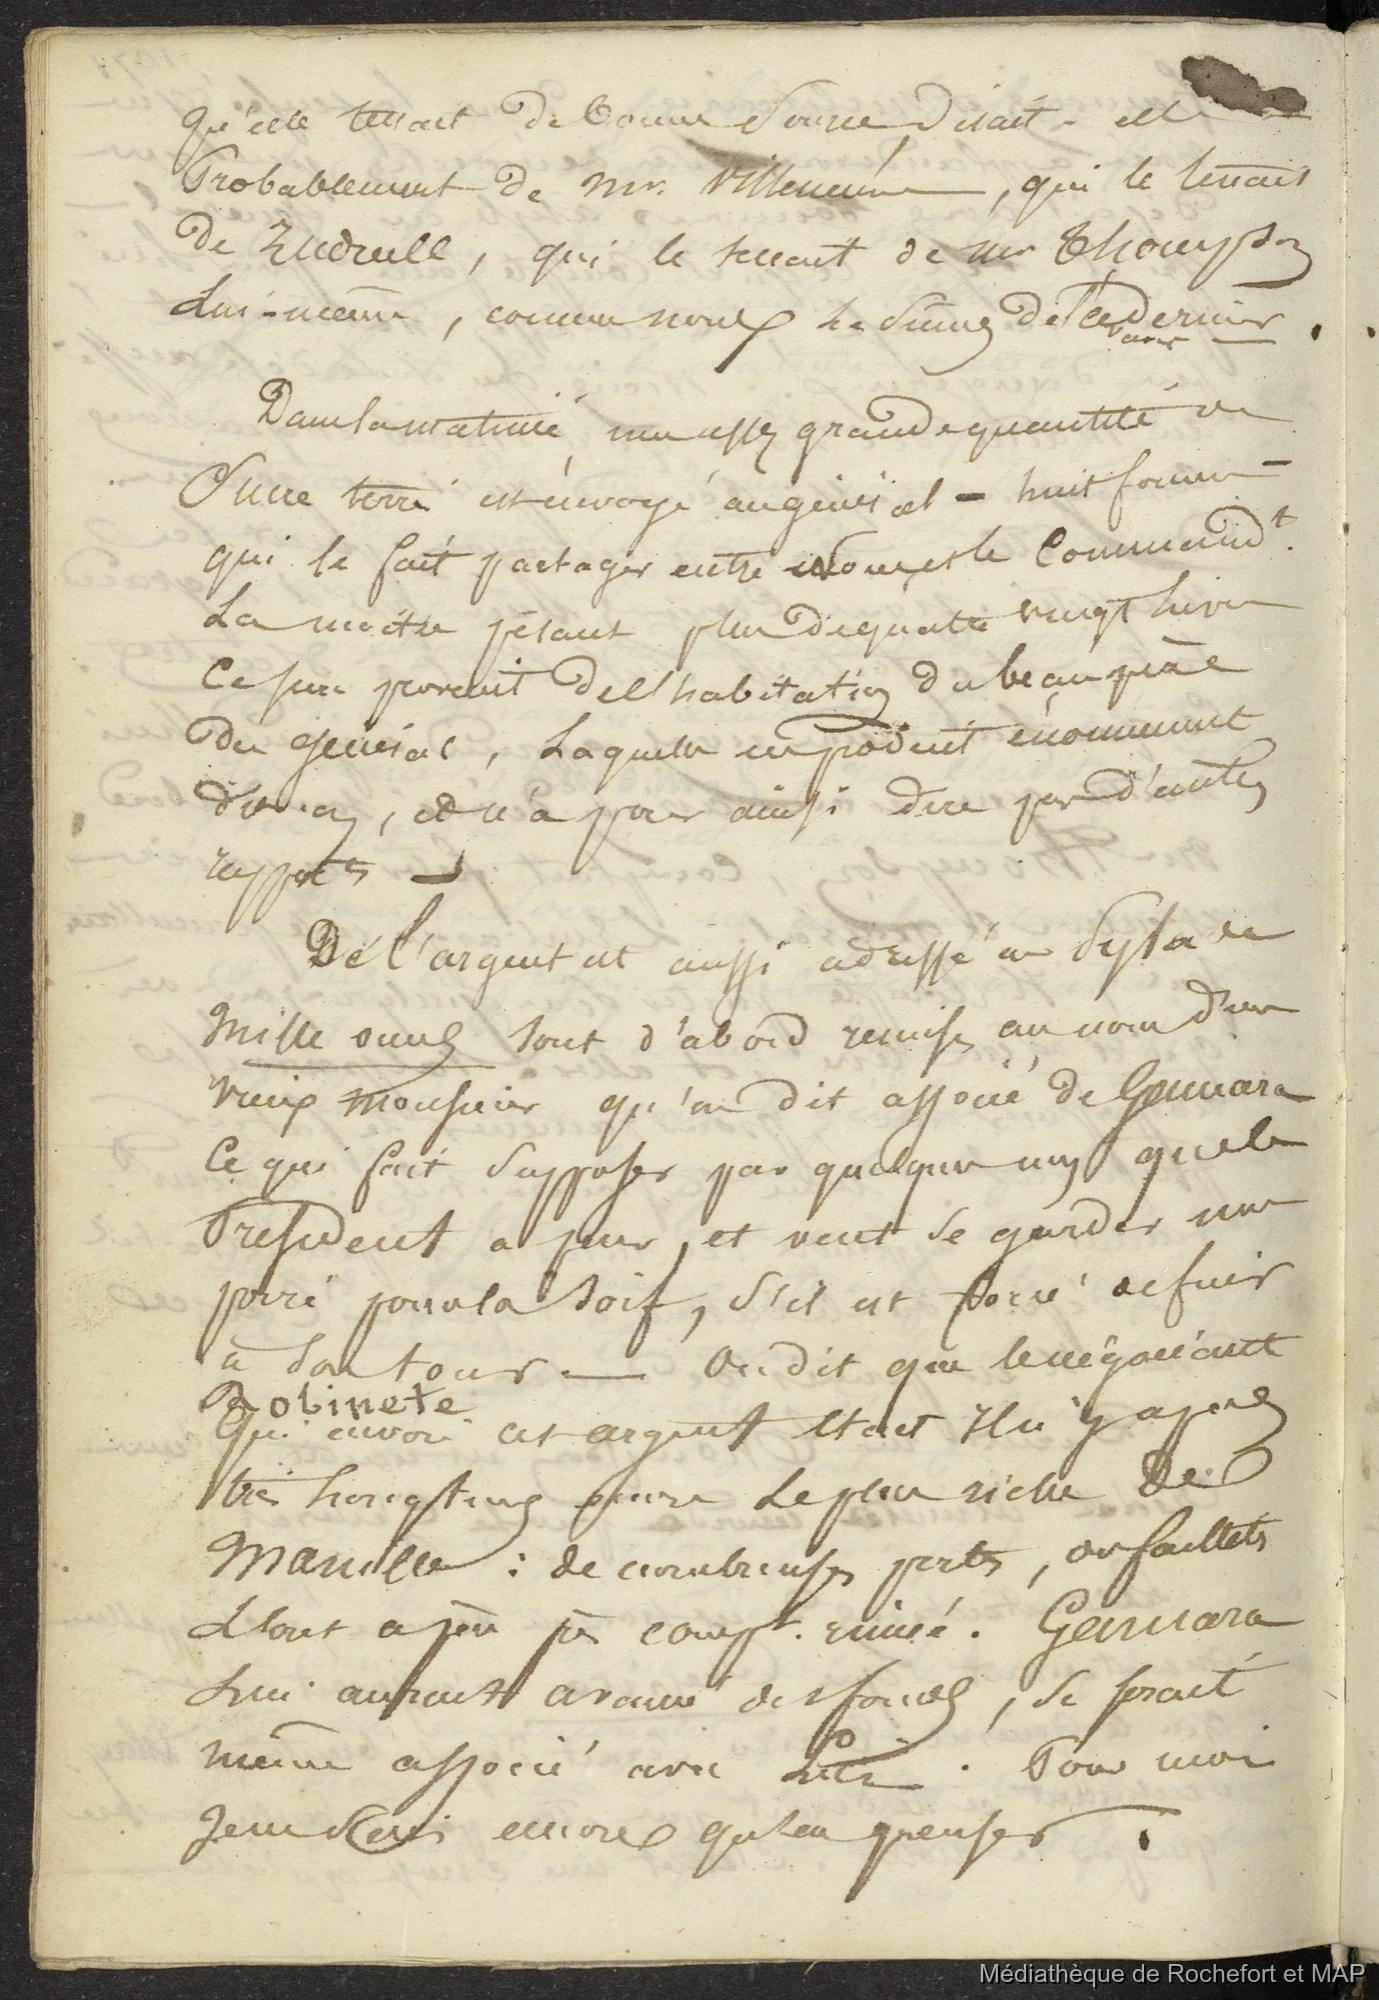 qu'elle tenait de bonne Source, disait-elle
Probablement de mr. Villeneuve, qui le tenait
de Eudrell, qui le tenait de mr Thompson
Lui-même, comme nous le Sûmes de ce dernier.
Dans la matinée, une assez grande quantité de
Sucre terré est envoyé au général - huit formes
qui le fait partager entre nous, et le Command.t
La moitié pesant plus de quatre vingt livres
Ce sucre provient de l'habitation du beau père
du général, Laquelle en produit énormement
, et n'a pour ainsi dire pas d'autres
rapports
De l'argent est aussi adressé au Sylla de
Mille onces sont d'abord remises au nom d'un
vieux monsieur qu'on dit associé de Gamarra
Ce qui fait Supposer par quelques uns que le
President a peur, et veut se garder une
poire pour la soif, s'il est forcé de fuir
à son tour — On dit que le négociant
Robinete
qui envoie cet argent était il n'y a pas
très longtems encore Le plus riche de
: de nombreuses pertes, ou faillites
L'ont à peu près compt. ruiné. Gamarra
Lui aurait avancé des fonds, se serait
même associé avec Lui. Pour moi
Je ne sais encore qu'en penser.
Médiathèque de Rochefort et MAP